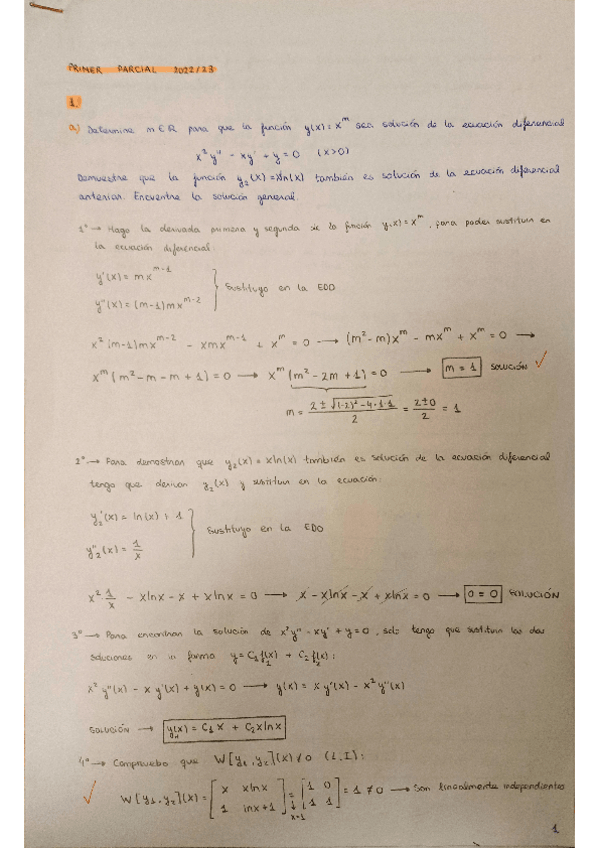 PRIMER PARCIAL 2022/23
1.
a) Determine m ∈ R para que la función y(x) = x^m sea solución de la ecuación diferencial
x² y'' - xy' + y = 0 (x>0)
Demuestre que la función y₂(x) = xln(x) también es solución de la ecuación diferencial
anterior. Encuentre la solución general.
1º → Hago la derivada primera y segunda de la función y(x) = x^m, para poder sustituir en
la ecuación diferencial:
y'(x) = mx^(m-1)
y''(x) = (m-1)mx^(m-2) } Sustituyo en la EDO
x²(m-1)mx^(m-2) - xmx^(m-1) + x^m = 0 → (m²-m)x^m - mx^m + x^m = 0 →
x^m(m²-m-m+1) = 0 → x^m(m²-2m+1) = 0 → m = 1 SOLUCIÓN ✓
m = (2 ± √((-2)²-4·1·1))/2 = (2±0)/2 = 1
2º → Para demostrar que y₂(x) = xln(x) también es solución de la ecuación diferencial
tengo que derivar y₂(x) y sustituir en la ecuación:
y₂'(x) = ln(x) + 1
y₂''(x) = 1/x } Sustituyo en la EDO
x²·1/x - xlnx - x + xlnx = 0 → x - xlnx - x + xlnx = 0 → 0 = 0 SOLUCIÓN
3º → Para encontrar la solución de x²y'' - xy' + y = 0, solo tengo que sustituir las dos
soluciones en la forma y = C₁f₁(x) + C₂f₂(x):
x² y''(x) - x y'(x) + y(x) = 0 → y(x) = x y'(x) - x² y''(x)
SOLUCIÓN → y_H(x) = C₁ x + C₂ xlnx
4º → Compruebo que W[y₁, y₂](x) ≠ 0 (L.I):
✓ W[y₁, y₂](x) = [x xlnx; 1 lnx+1] = [1 0; 1 1] = 1 ≠ 0 → Son linealmente independientes
x=1
1